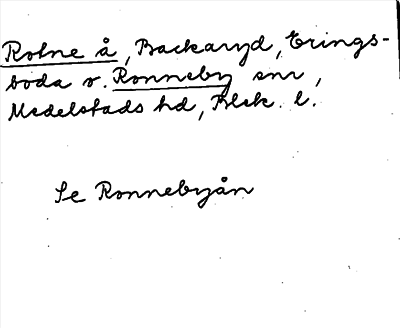 Rotne å, Backaryd, Erings-
boda o. Ronneby snr,
Medelstads hd, Blek. l.
Se Ronnebyån